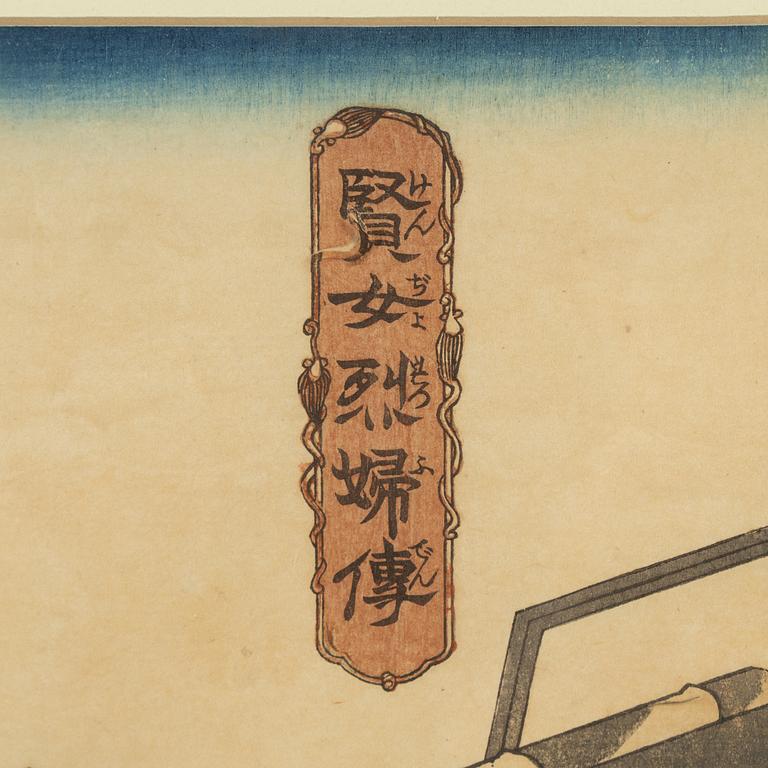 賢女烈婦傳
けんぢよせつふでん